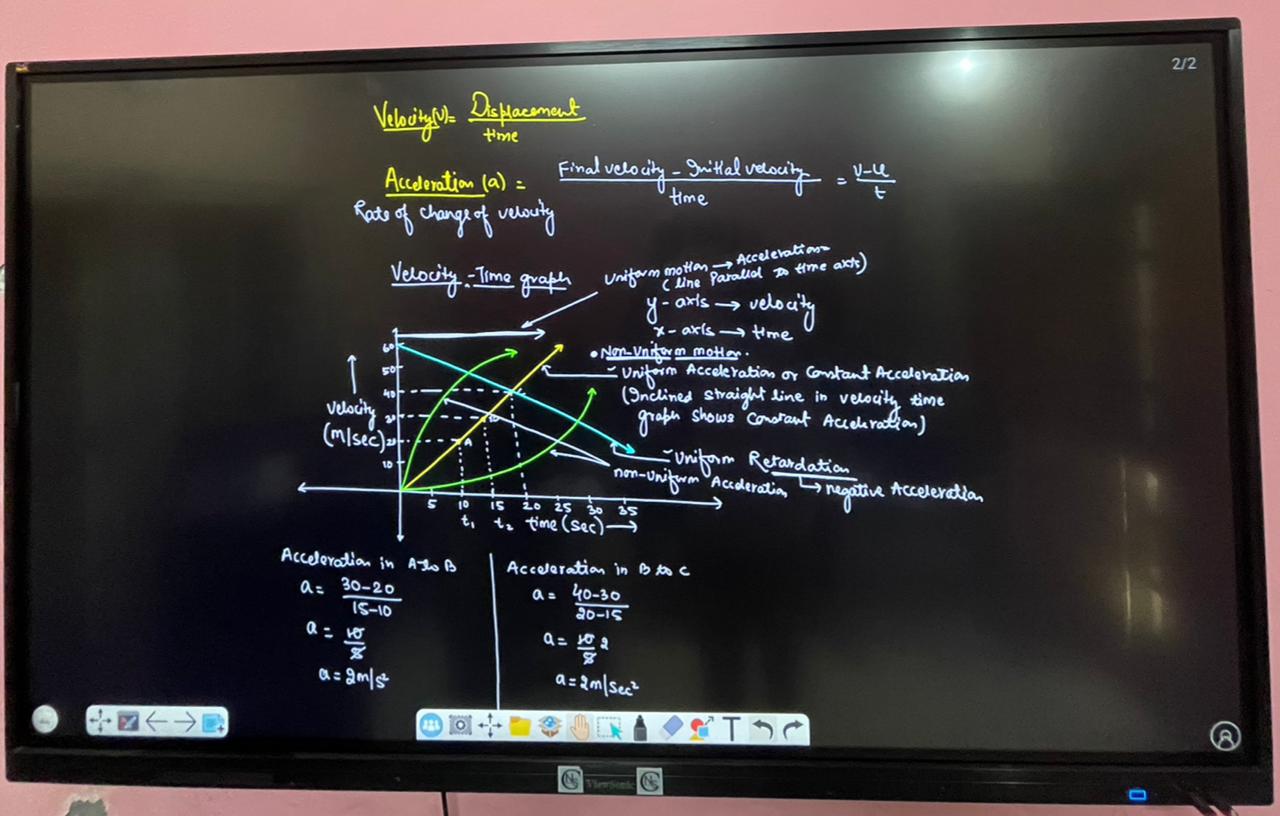 2/2
Velocity(v) = Displacement / time
Acceleration (a) = Final velocity - Initial velocity / time = v-u / t
Rate of change of velocity
Velocity - Time graph
Uniform motion → Acceleration
(line Parallel to time axis)
y-axis → velocity
x-axis → time
• Non-Uniform motion.
Uniform Acceleration or Constant Acceleration
(Inclined straight line in velocity time
graph shows Constant Acceleration)
Uniform Retardation
→ negative Acceleration
non-uniform Acceleration
60
50
40
30
20
10
Velocity
(m/sec)
A
5 10 15 20 25 30 35
t₁ t₂ time (sec) →
Acceleration in A to B
a = 30-20 / 15-10
a = 10 / 5
a = 2m/s²
Acceleration in B to C
a = 40-30 / 20-15
a = 10 / 5 2
a = 2m/sec²
T
ViewSonic